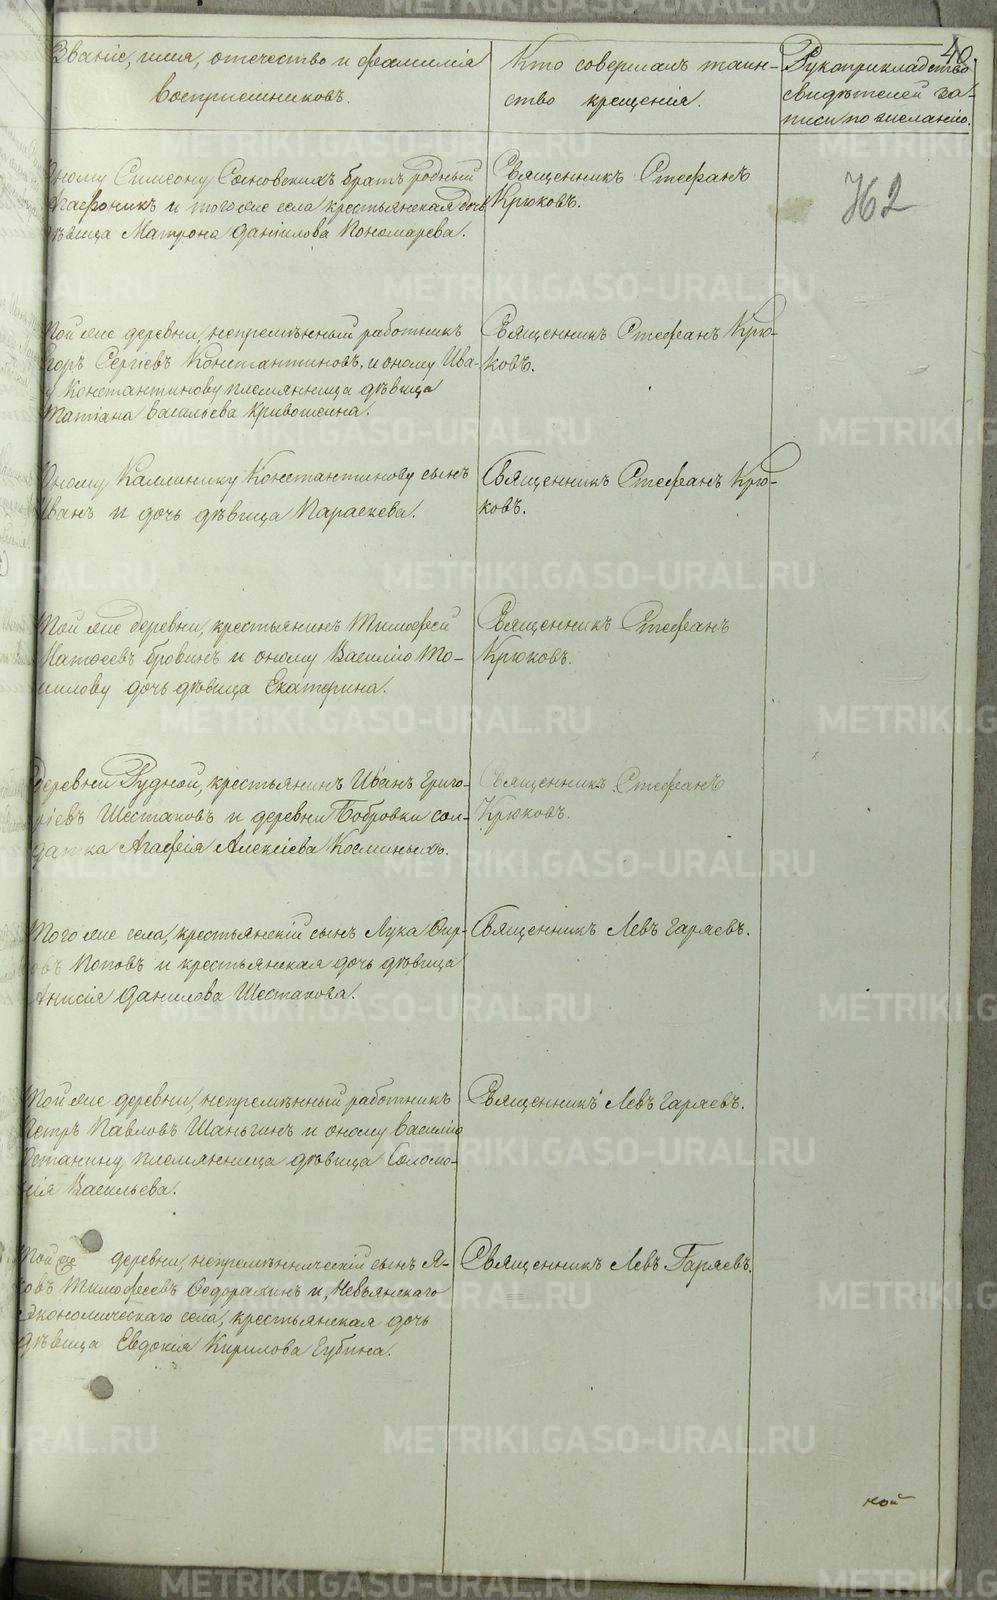 40.
Званіе, имя, отечество и фамилія
воспріемниковъ.
Кто совершалъ таин-
ство крещенія.
Рукоприкладство
свидѣтелей за-
писи по желанію.
762
Оному Симеону Сосновскихъ братъ родный
Агафоникъ и того же села крестьянская дочь
дѣвица Матрона Данiилова Пономарева.
Священникъ Стефанъ
Крюковъ.
Той же деревни, непремѣнный работникъ
Егоръ Сергіевъ Константиновъ, и оному Ива-
ну Константинову племянница дѣвица
Татіана Васильева Кривошеина.
Священникъ Стефанъ Крю-
ковъ.
Оному Каллинику Константинову сынъ
Иванъ и дочь дѣвица Параскева.
Священникъ Стефанъ Крю-
ковъ.
Той же деревни, крестьянинъ Тимофей
Матфеевъ Бровинъ и оному Василію То-
милову дочь дѣвица Екатерина.
Священникъ Стефанъ
Крюковъ.
Деревни Рудной, крестьянинъ Иванъ Григо-
ріевъ Шестаковъ и деревни Бобровки сол-
датка Агафія Алексіева Косминыхъ.
Священникъ Стефанъ
Крюковъ.
Того же села, крестьянскій сынъ Лука Фир-
овъ Поповъ и крестьянская дочь дѣвица
Анисія Данилова Шестакова.
Священникъ Левъ Гаряевъ.
Той же деревни, непремѣнный работникъ
Петръ Павловъ Шаньгинъ и оному Василію
Останину племянница дѣвица Соломо-
нія Васильева.
Священникъ Левъ Гаряевъ.
Той же деревни, непремѣнническій сынъ Я-
ковъ Тимофеевъ Федорахинъ и, Невьянскаго
Экономическаго села, крестьянская дочь
дѣвица Евдокія Кирилова Губина.
Священникъ Левъ Гаряевъ.
кой
METRIKI.GASO-URAL.RU